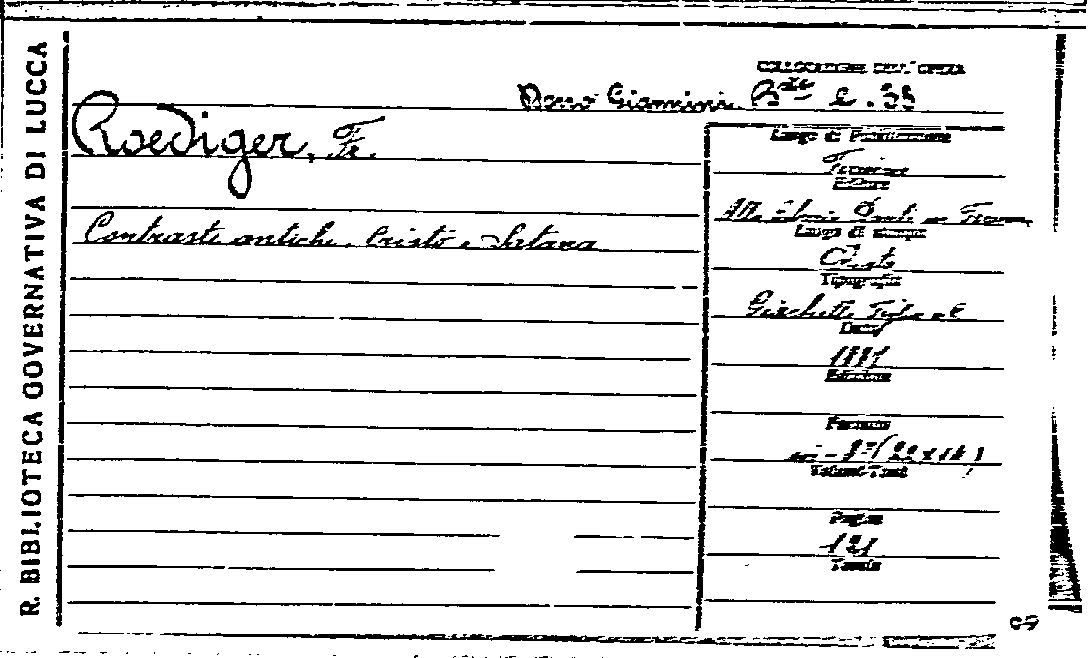 R. BIBLIOTECA GOVERNATIVA DI LUCCA
COLLOCAZIONE DELL'OPERA
Dono Giannini. B.ta C. 35
Roediger, Fr.
Contrasti antichi. Cristo e Satana
Luogo di Pubblicazione
Firenze
Editore
Alla Libreria Dante in Firenze
Luogo di stampa
Tipografia
Data
Edizione
Formato
in-8° (22x14)
Volumi-Tomi
Pagine
121
Tavole